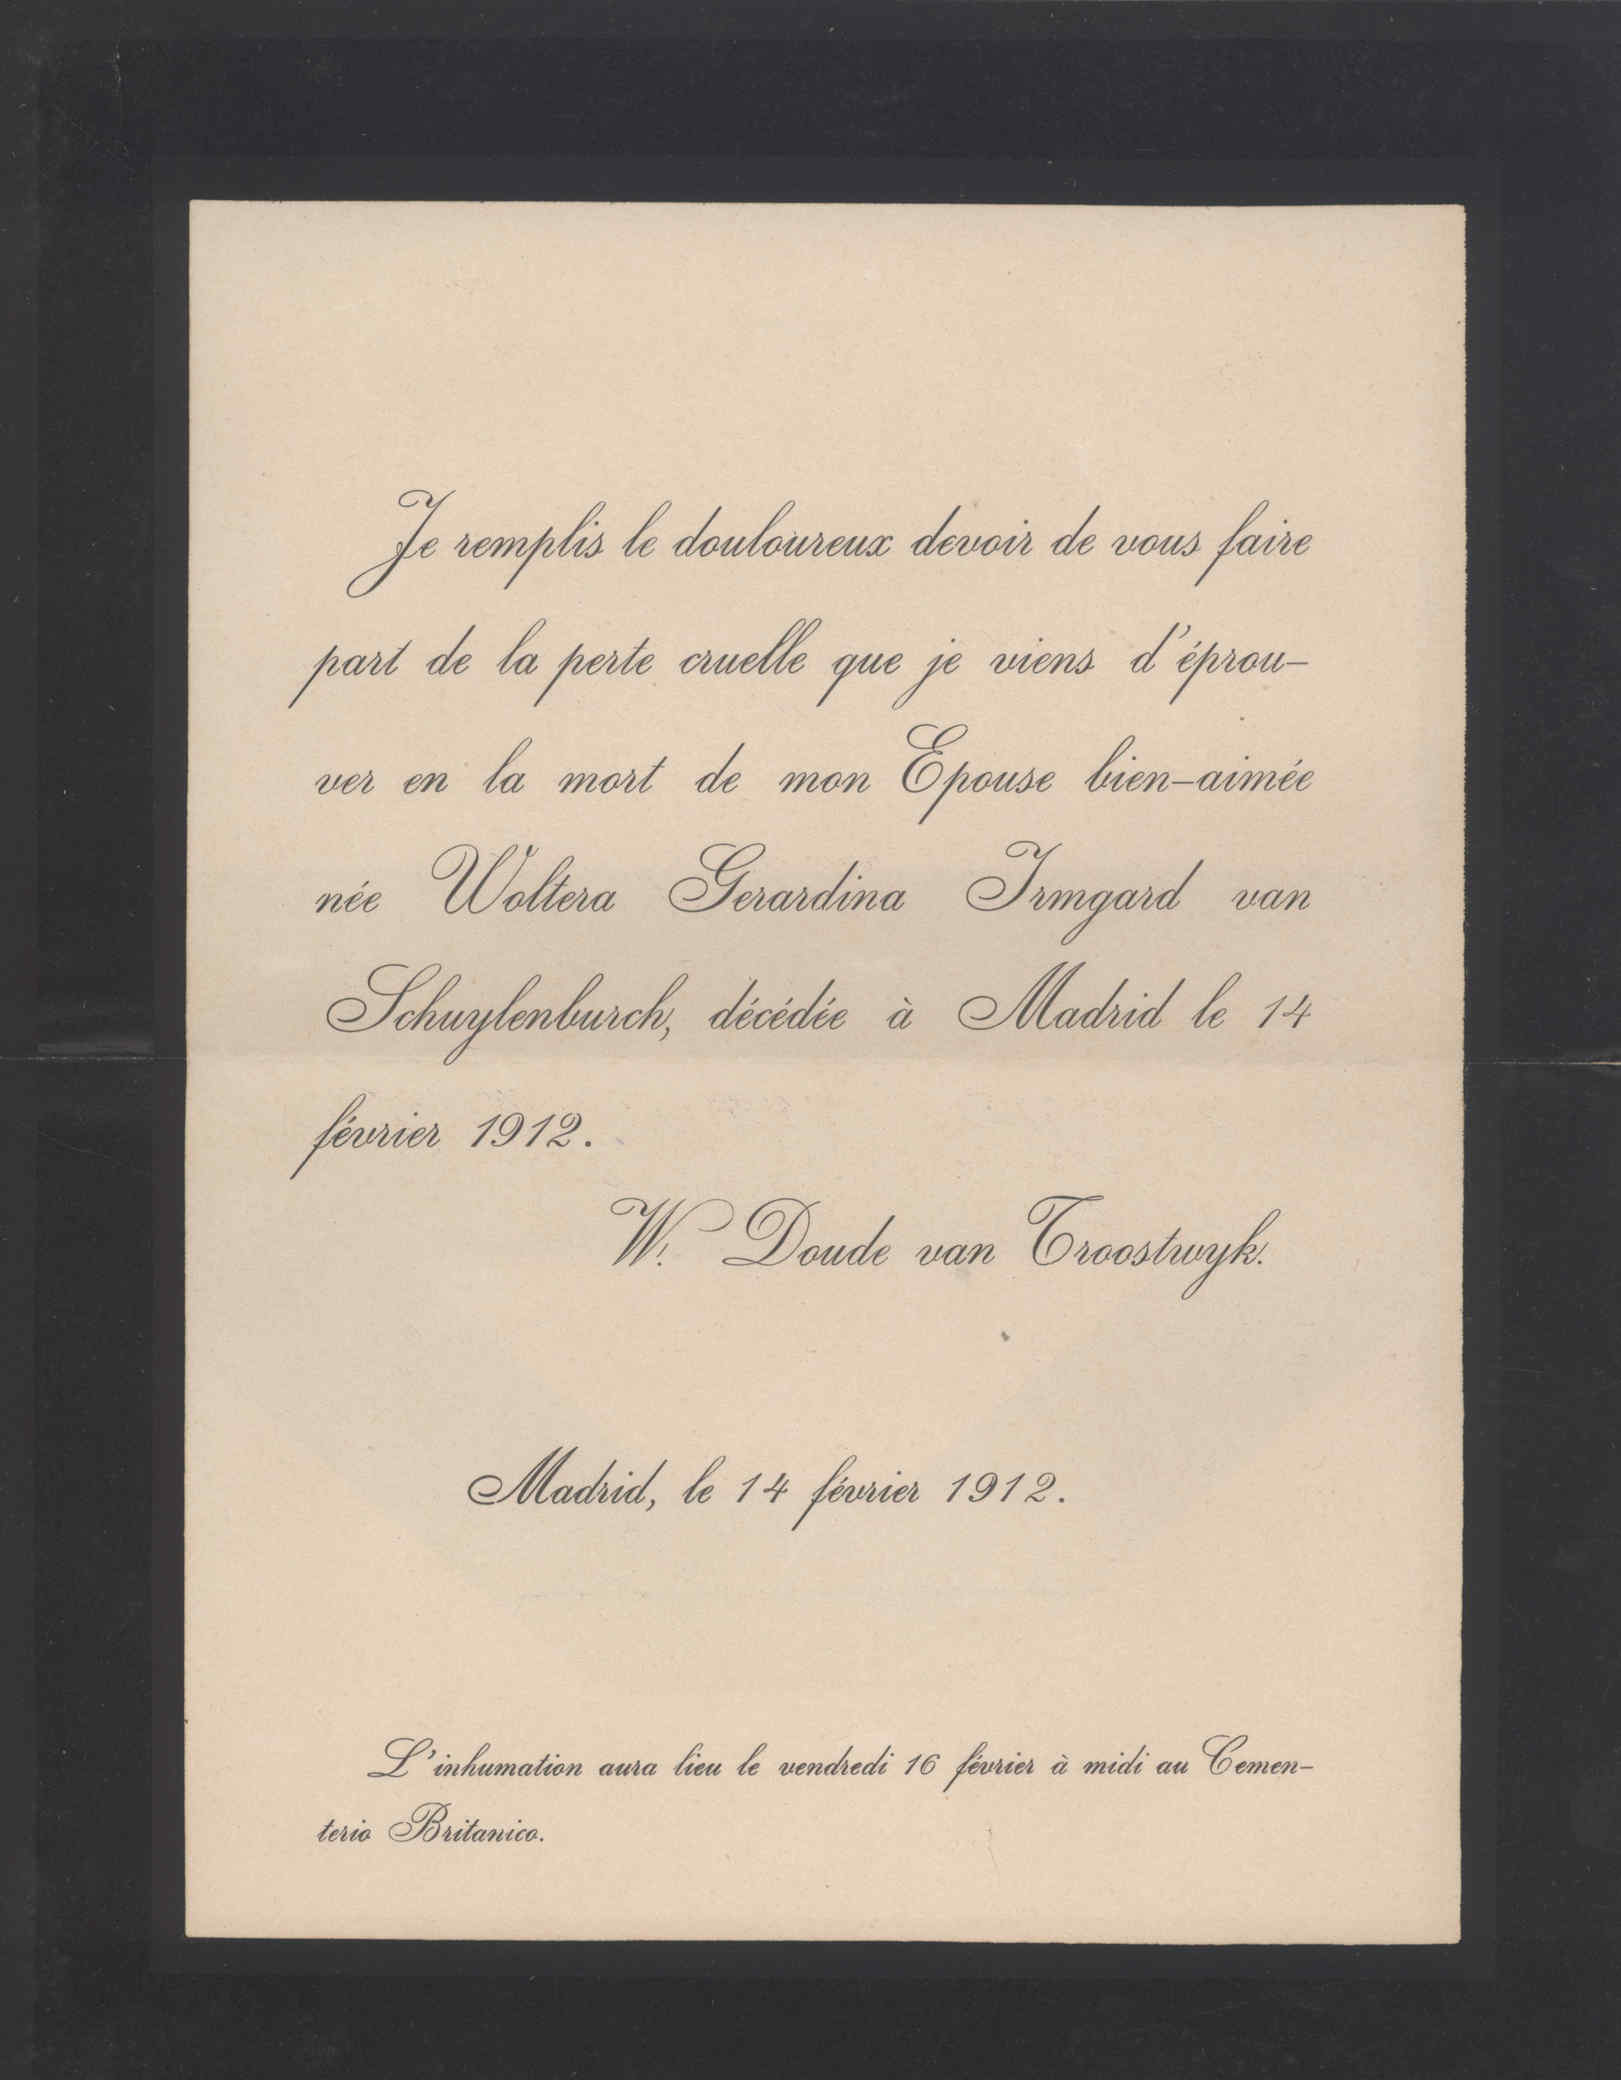 Je remplis le douloureux devoir de vous faire
part de la perte cruelle que je viens d'éprou-
ver en la mort de mon Epouse bien-aimée
née Woltera Gerardina Irmgard van
Schuylenburch, décédée à Madrid le 14
février 1912.
W. Doude van Troostwyk.
Madrid, le 14 février 1912.
L'inhumation aura lieu le vendredi 16 février à midi au Cemen-
terio Britanico.